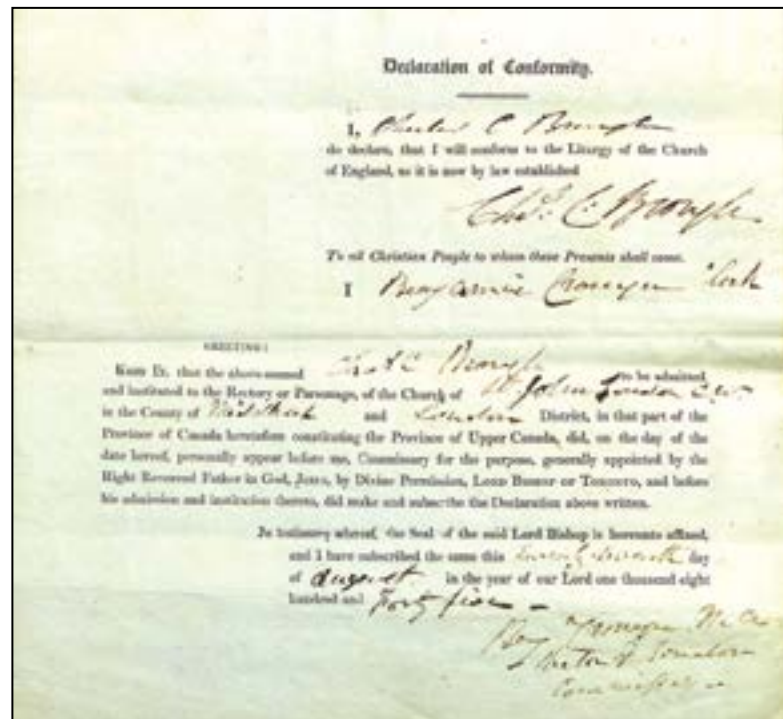 Declaration of Conformity.
I, Charles C Brough
do declare, that I will conform to the Liturgy of the Church
of England, as it is now by law established
Chas. C. Brough
To all Christian People to whom these Presents shall come.
I Benjamin Cronyn Clerk
GREETING:
Know Ye, that the above-named Chas C Brough to be admitted
and instituted to the Rectory or Parsonage, of the Church of St John London C.W.
in the County of Middlesex and London District, in that part of the
Province of Canada heretofore constituting the Province of Upper Canada, did, on the day of the
date hereof, personally appear before me, Commissary for the purpose, generally appointed by the
Right Reverend Father in God, John, by Divine Permission, Lord Bishop of Toronto, and before
his admission and institution thereto, did make and subscribe the Declaration above written.
In testimony whereof, the Seal of the said Lord Bishop is hereunto affixed,
and I have subscribed the same this twenty seventh day
of August in the year of our Lord one thousand eight
hundred and forty five
Ben Cronyn
Rector of London
Commissary